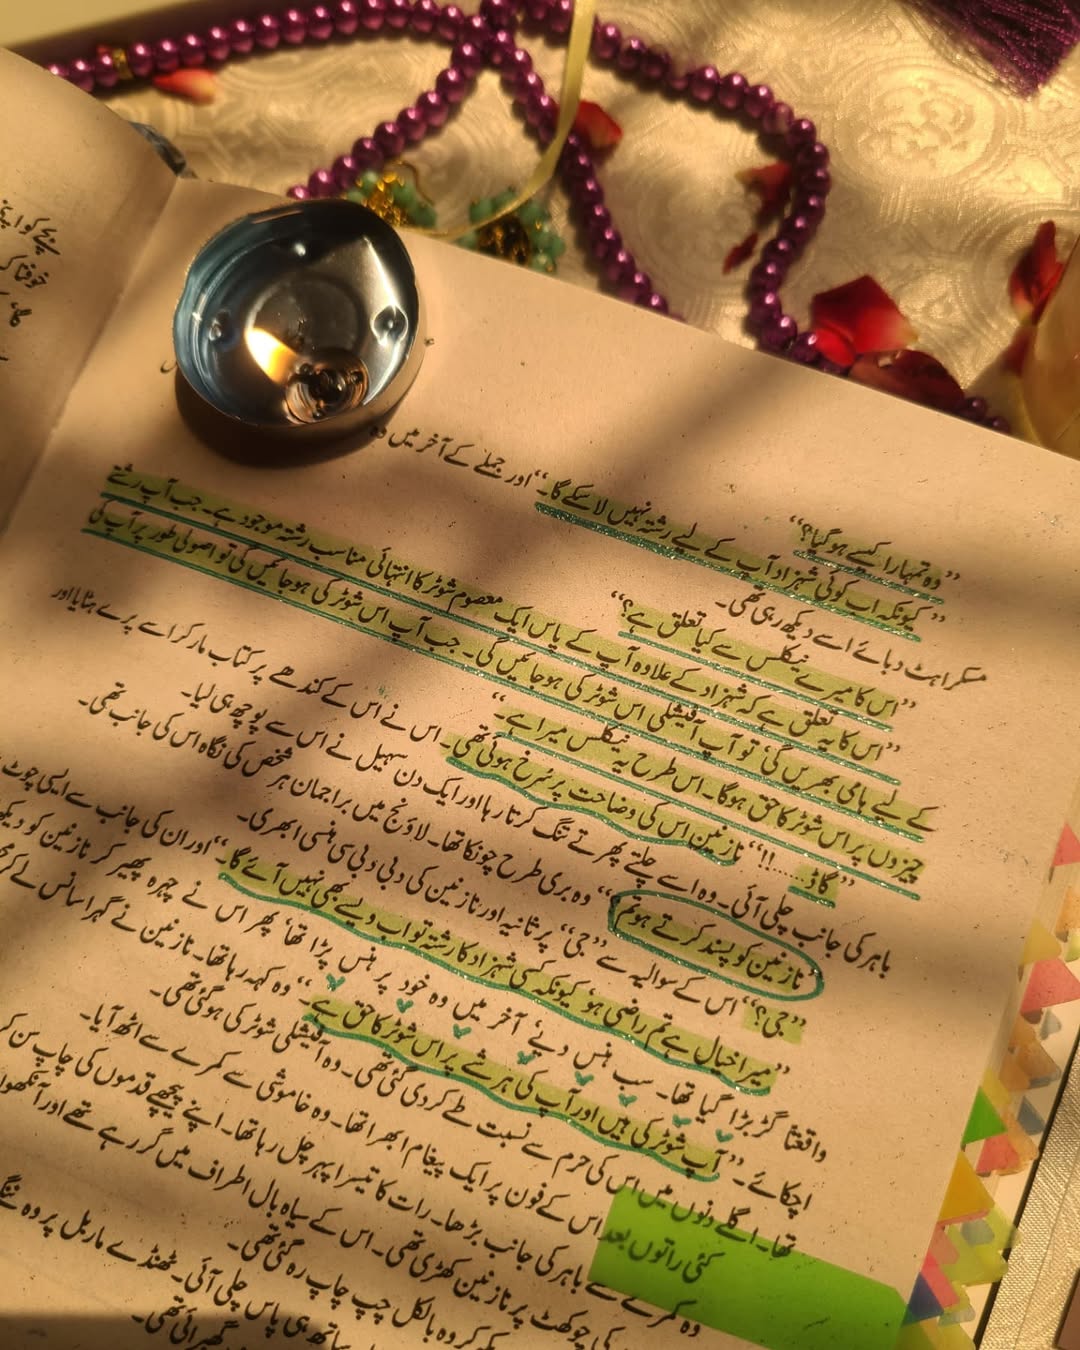 اور جملے کے آخر میں وہ
”وہ تمہارا کیسے ہو گیا؟“
”کیونکہ اب کوئی شہزاد آپ کے لیے رشتہ نہیں لا سکے گا۔“
مسکراہٹ دبائے اسے دیکھ رہی تھی۔
”اس کا میرے نیکلس سے کیا تعلق ہے؟“
”اس کا یہ تعلق ہے کہ شہزاد کے علاوہ آپ کے پاس ایک معصوم شوٹر کا انتہائی مناسب رشتہ موجود ہے۔ جب آپ رشتے
کے لیے ہامی بھریں گی، تو آپ آفیشلی اس شوٹر کی ہو جائیں گی۔ جب آپ اس شوٹر کی ہو جائیں گی تو اصولی طور پر آپ کی
چیزوں پر اس شوٹر کا حق ہوگا۔ اس طرح یہ نیکلس میرا ہے۔“
”گاڈ......!!“ نازنین اس کی وضاحت پر سُرخ ہوئی تھی۔ اس نے اس کے کندھے پر کتاب مار کر اسے پرے ہٹایا اور
باہر کی جانب چلی آئی۔ وہ اسے چلتے پھرتے تنگ کرتا رہا اور ایک دن سہیل نے اس سے پوچھ ہی لیا۔
”نازنین کو پسند کرتے ہو تم“ وہ بری طرح چونکا تھا۔ لاؤنج میں براجمان ہر شخص کی نگاہ اس کی جانب تھی۔
”جی؟“ اس کے سوالیہ سے ”جی“ پر ثانیہ اور نازنین کی دبی دبی سی ہنسی ابھری۔
”میرا خیال ہے تم راضی ہو، کیونکہ کسی شہزاد کا رشتہ تو اب ویسے بھی نہیں آئے گا۔“ اور ان کی جانب سے ایسی چوٹ
واقعتاً گڑبڑا گیا تھا۔ سب ہنس دیے، آخر میں وہ خود پر ہنس پڑا تھا، پھر اس نے چہرہ پھیر کر نازنین کو
اچکائے۔ ”آپ شوٹر کی ہیں اور آپ کی ہر شے پر اس شوٹر کا حق ہے۔“ وہ کہہ رہا تھا۔ نازنین نے گہرا سانس لے کر
تھا۔ اگلے دنوں میں اس کی حرم سے نسبت طے کر دی گئی تھی۔ وہ آفیشلی شوٹر کی ہو گئی تھی۔
کئی راتوں بعد اس کے فون پر ایک پیغام ابھرا تھا۔ وہ خاموشی سے کمرے سے اٹھ آیا۔
وہ کمرے سے باہر کی جانب بڑھا۔ رات کا تیسرا پہر چل رہا تھا۔ اپنے پیچھے قدموں کی چاپ سن کر
کی چوکھٹ پر نازنین کھڑی تھی۔ اس کے سیاہ بال اطراف میں گر رہے تھے اور آنکھوں
کر وہ بالکل چپ چاپ رہ گئی تھی۔
ساتھ ہی پاس چلی آئی۔ ٹھنڈے ماربل پر وہ
گھبرائی تھی۔